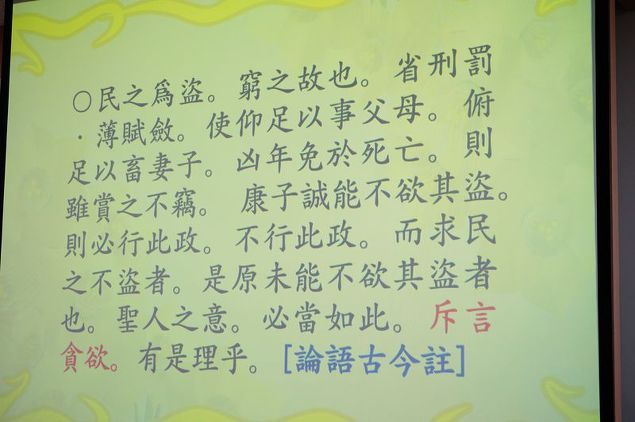 ○民之爲盜。窮之故也。省刑罰
·薄賦斂。使仰足以事父母。俯
足以畜妻子。凶年免於死亡。則
雖賞之不竊。康子誠能不欲其盜。
則必行此政。不行此政。而求民
之不盜者。是原未能不欲其盜者
也。聖人之意。必當如此。斥言
貪欲。有是理乎。[論語古今註]